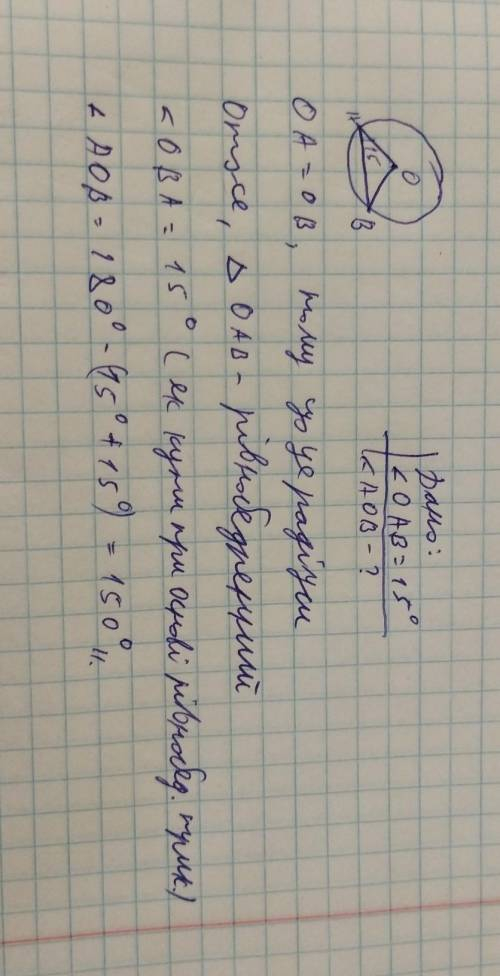 O
A
15
B
Дано:
∠OAB = 15°
∠AOB - ?
OA = OB, тому що це радіуси
Отже, △ OAB - рівнобедренний
∠OBA = 15° (як кути при основі рівнобед. трик.)
∠AOB = 180° - (15° + 15°) = 150°